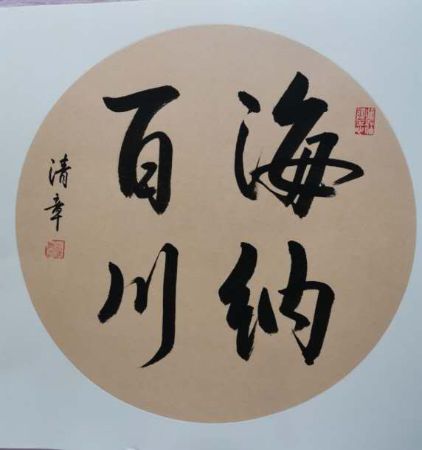 海纳
百川
清章